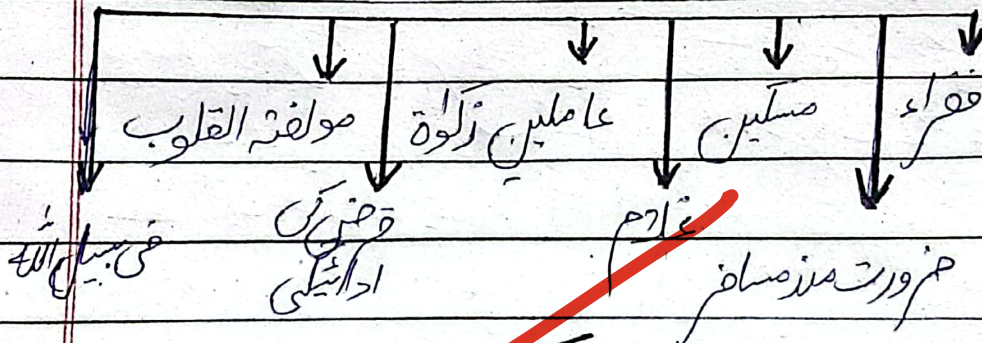 فقراء مسکین عاملین زکوٰۃ مولفتہ القلوب
ضرورت مند مسافر غلام قرض کی ادائیگی فی سبیل اللہ